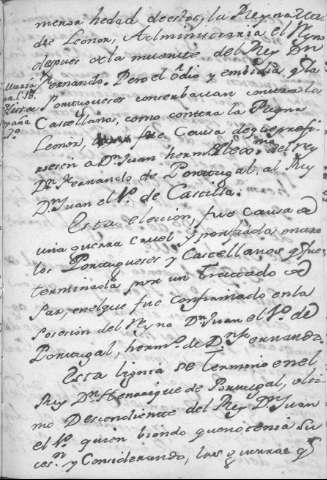 menor hedad de estos, la Reyna Ma
dre Leonor, Administraria el Rno
despues de la muerte del Rey Dn
Fernando. Pero el odio y embidia, q la
Portugueses conserbavan contra los
Castellanos, como contra la Reyna
Leonor, fue Causa de que prefi
riesen a Dn Juan hermo del rey
Dn Fernando de Portugal, al Rey
Dn Juan el 1o. de Castilla.
Esta eleccion, fue causa de
una guerra cruel y porfiada entre
los Portugueses y Castellanos q fue
terminada por un Tractado de
Paz, en el que fue confirmado en la
Posesion del Reyno Dn Juan el 1o. de
Portugal, hermo. de Dn Fernando.
Esta linea se termino en el
Rey Dn Henrique de Portugal, ulti
mo Descendiente del Rey Dn Juan
el 1o. quien biendo que no tenia su
ces.n y Considerando, las guerras q